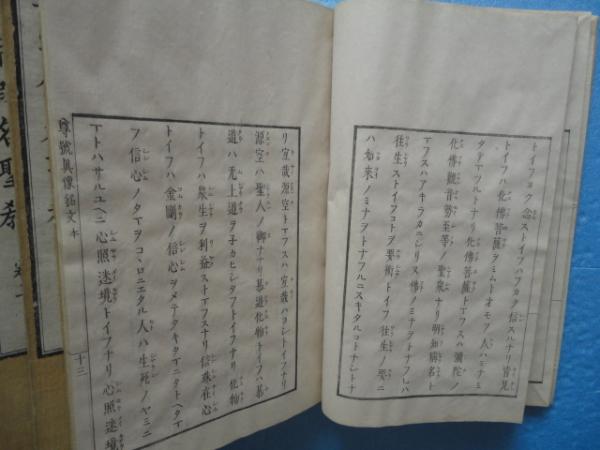 トイフヨク念ストイフハフカク信スルナリ皆見
トイフハ化佛菩薩ヲミムトオモフ人ハミナミ
タテマツルトナリ化佛菩薩トマフスハ彌陀ノ
化佛觀音勢至等ノ聖衆ナリ明知稱名ト
マフスハアキラカニシリヌ佛ノミナヲトナフレハ
往生ストイフコトヲ要術トイフ往生ノ要ニ
ハ如來ノミナヲトナフルニスキタルコトナシトナ
リ宜哉源空トマフスハ宜哉ハヨシトイフナリ
源空ハ聖人ノ御ナナリ慕道化物トイフハ慕
道ハ无上道ヲネカヒシタフトイフナリ化物
トイフハ衆生ヲ利益ストマフスナリ信珠在心
トイフハ金剛ノ信心ヲメテタキタマニタトヘタマ
フ信心ノタマヲコヽロニエタル人ハ生死ノヤミニ
マトハサルユヘニ心照迷境トイフナリ心照迷境
尊號眞像銘文本
十三